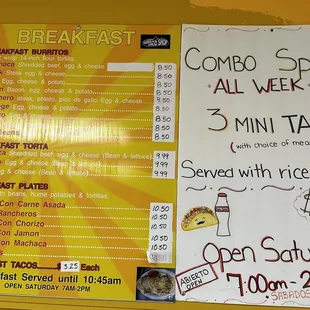 BREAKFAST
TACO SHOP
AKFAST BURRITOS
wrap 14-inch flour tortilla
haca Shredded beef, egg & cheese 8.50
Steak egg & cheese 8.50
Egg & cheese 8.50
n Bacon, egg & cheese, potato 8.50
hero steak, potato, pico de gallo Egg & cheese 8.50
age, egg & cheese, potato 8.50
zo 8.50
8.50
Beans 8.50
KFAST TORTA
ca Shredded beef, egg & cheese (Bean & lettuce) 9.99
Egg & cheese (Bean & lettuce) 9.99
egg & cheese (Bean & lettuce) 9.99
FAST PLATES
with beans, home potatoes & tortillas
Con Carne Asada 10.50
Rancheros 10.50
Con Chorizo 10.50
Con Jamon 10.50
Con Machaca 10.50
ST TACOS 3.25 Each
kfast Served until 10:45am
OPEN SATURDAY 7AM-2PM
COMBO Sp
ALL WEEK
3 MINI TA
(with choice of mea
Served with rice
Open Satu
ABIERTO
OPEN
7:00am-2
SABADOS